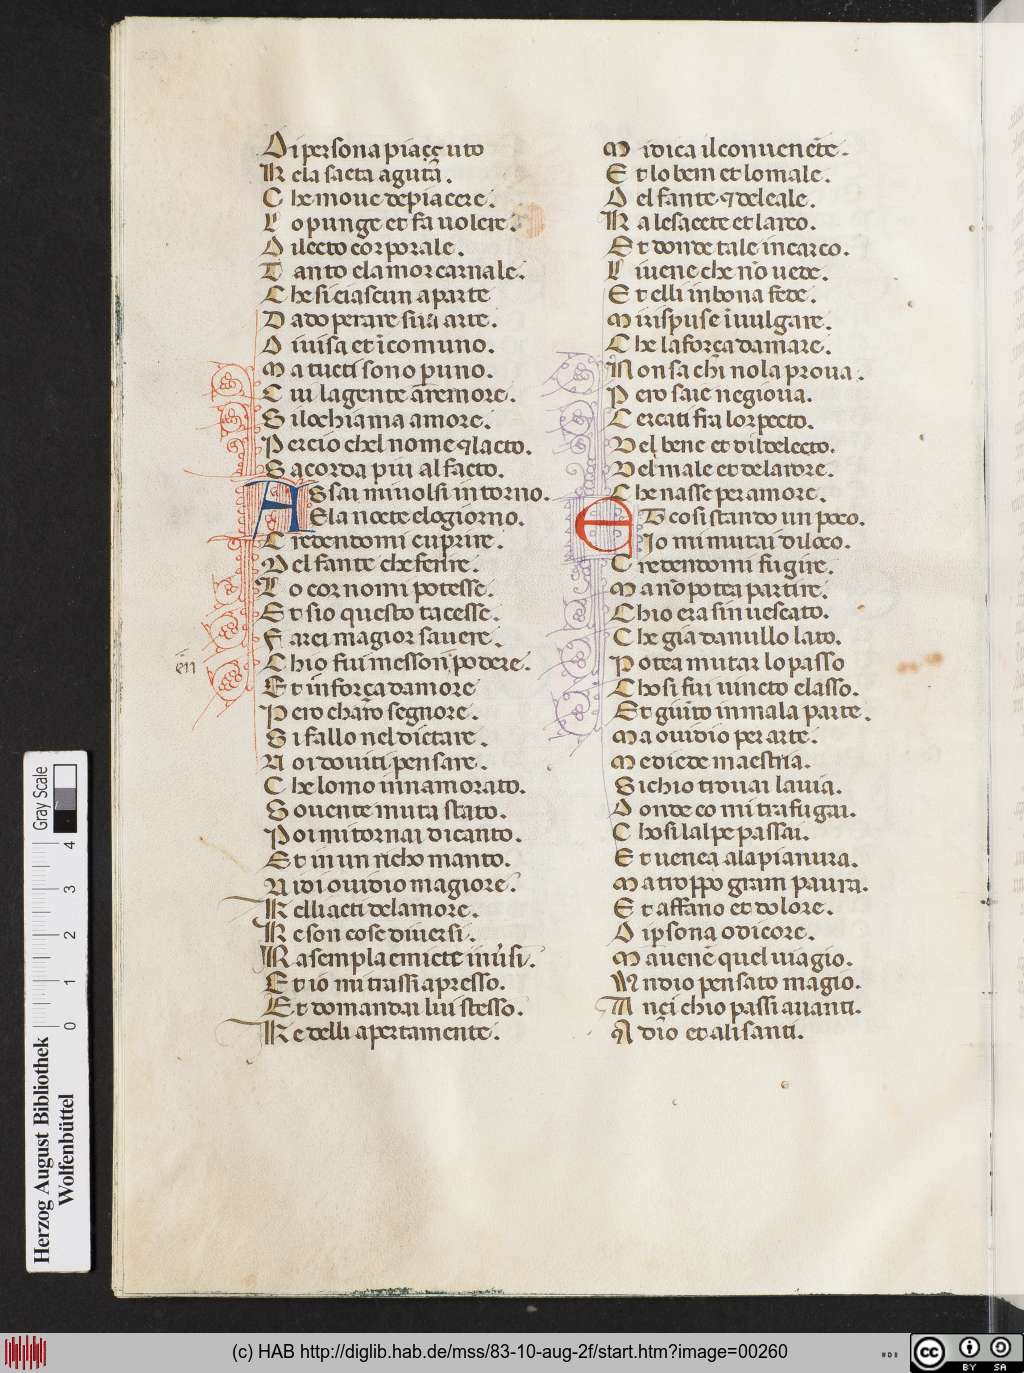 Di persona piacc uto
N ela saeta aguta.
C he moue de piacere.
L o punge et fa uolere.
D ilecto corporale.
T anto elamor carnale.
C he si ciascun a parte
D ado perare sua arte.
D iuisa et icomuno.
M a tucti sono p uno.
C ui la gente a remore.
S i lochiama amore.
P ercio chel nome q lacto.
S acorda piu al facto.
A Ssai miuolsi intorno.
E la nocte elogiorno.
C redendomi cuprire.
D el fante che ferire.
L o cor nomi potesse.
E t sio questo tacesse.
F arei magior sauere.
C hio fui messon podere.
en
E t inforça damore
P ero charo segnore.
S i fallo nel dictare.
N oi douiti pensare.
C he lomo innamorato.
S ouente muta stato.
P oi mi tornai di canto.
E t in un richo manto.
V idi ouidio magiore.
K elli acti delamore.
K e son cose diuersi.
R asempla emicte inuersi.
E t io mi trassi apresso.
E t domandai lui stesso.
K e delli apertamente.
M i dica il conuenete.
E t lo bem et lo male.
D el fante q deleale.
R a lesaecte et larco.
E t donde tale incarco.
L i uene che no uede.
E t elli in bona fede.
M i rispuse i uulgare.
C he la força damare.
N on sa chi no la proua.
P ero saie negioua.
C ercati fra lor pecto.
D el bene et dildelecto.
D el male et delardre.
C he nasse per amore.
E T cosi stando un poco.
Io mi mutai di loco.
C redendomi fugire.
M a no potea partire.
C hio era sin uescato.
C he gia da nullo lato.
P otea mutar lo passo
C hosi fui uincto elasso.
E t giuto in mala parte.
M a ouidio per arte.
M e diede maestria.
S i chio trouai la uia.
D onde co mi trafugai.
C hosi lalpe passai.
E t uenea ala pianura.
M a troppo gram paura.
E t affano et dolore.
D i psona o di core.
M auene quel uiagio.
A ndio pensato magio.
A nci chio passi auanti.
A dio et ali santi.
Herzog August Bibliothek
Wolfenbüttel
Gray Scale
0 1 2 3 4
(c) HAB http://diglib.hab.de/mss/83-10-aug-2f/start.htm?image=00260
cc BY SA